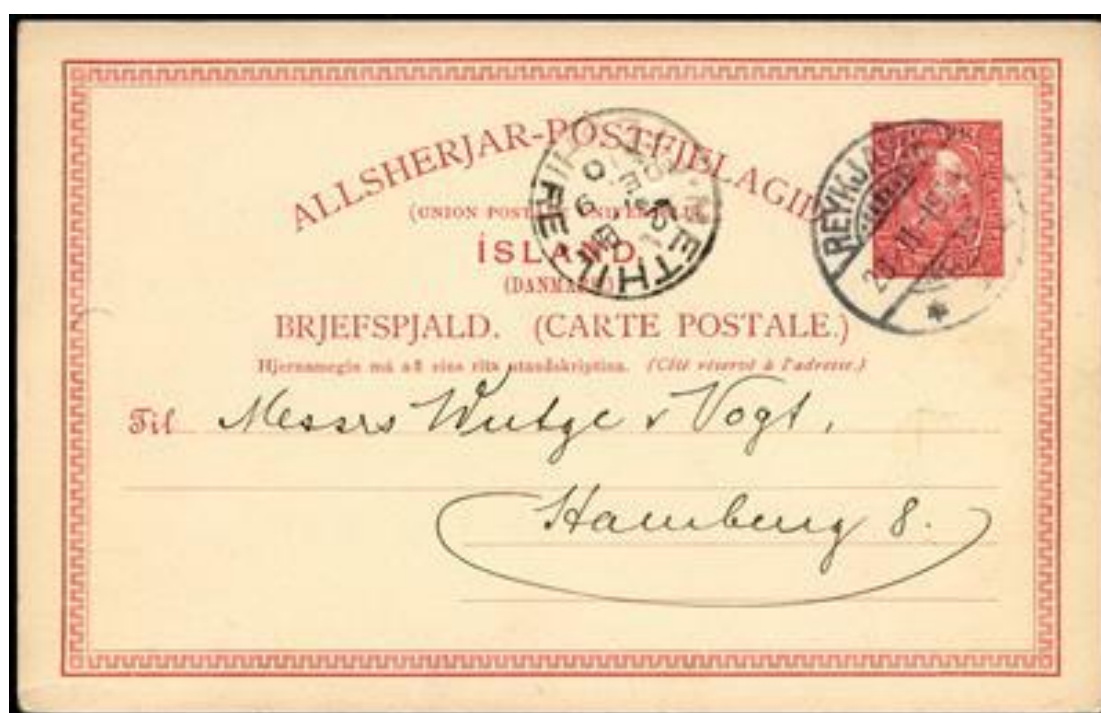 ALLSHERJAR-PÓSTFJELAGIÐ
(UNION POSTALE UNIVERSELLE)
ÍSLAND.
(DANMARK)
BRJEFSPJALD. (CARTE POSTALE.)
Hjernamegin má að eins rita utanáskriptina. (Côté réservé à l'adresse.)
Til Messrs Wutge & Vogt,
Hamburg 8.
REYKJAVÍK
METHIL